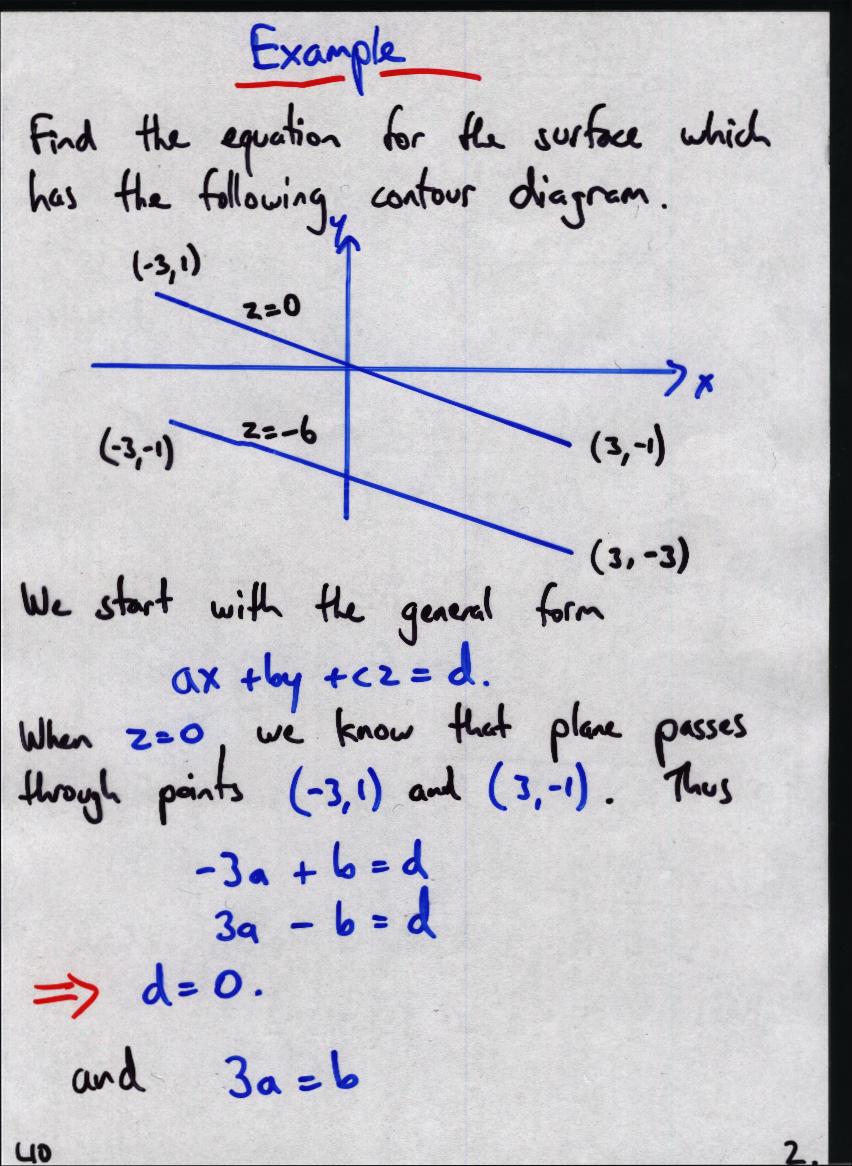 Example
Find the equation for the surface which
has the following contour diagram.
y
(-3,1)
z=0
x
(-3,-1)
z=-6
(3,-1)
(3,-3)
We start with the general form
ax +by +cz = d.
When z=0, we know that plane passes
through points (-3,1) and (3,-1). Thus
-3a + b = d
3a - b = d
⇒ d = 0.
and 3a = b
40
2.